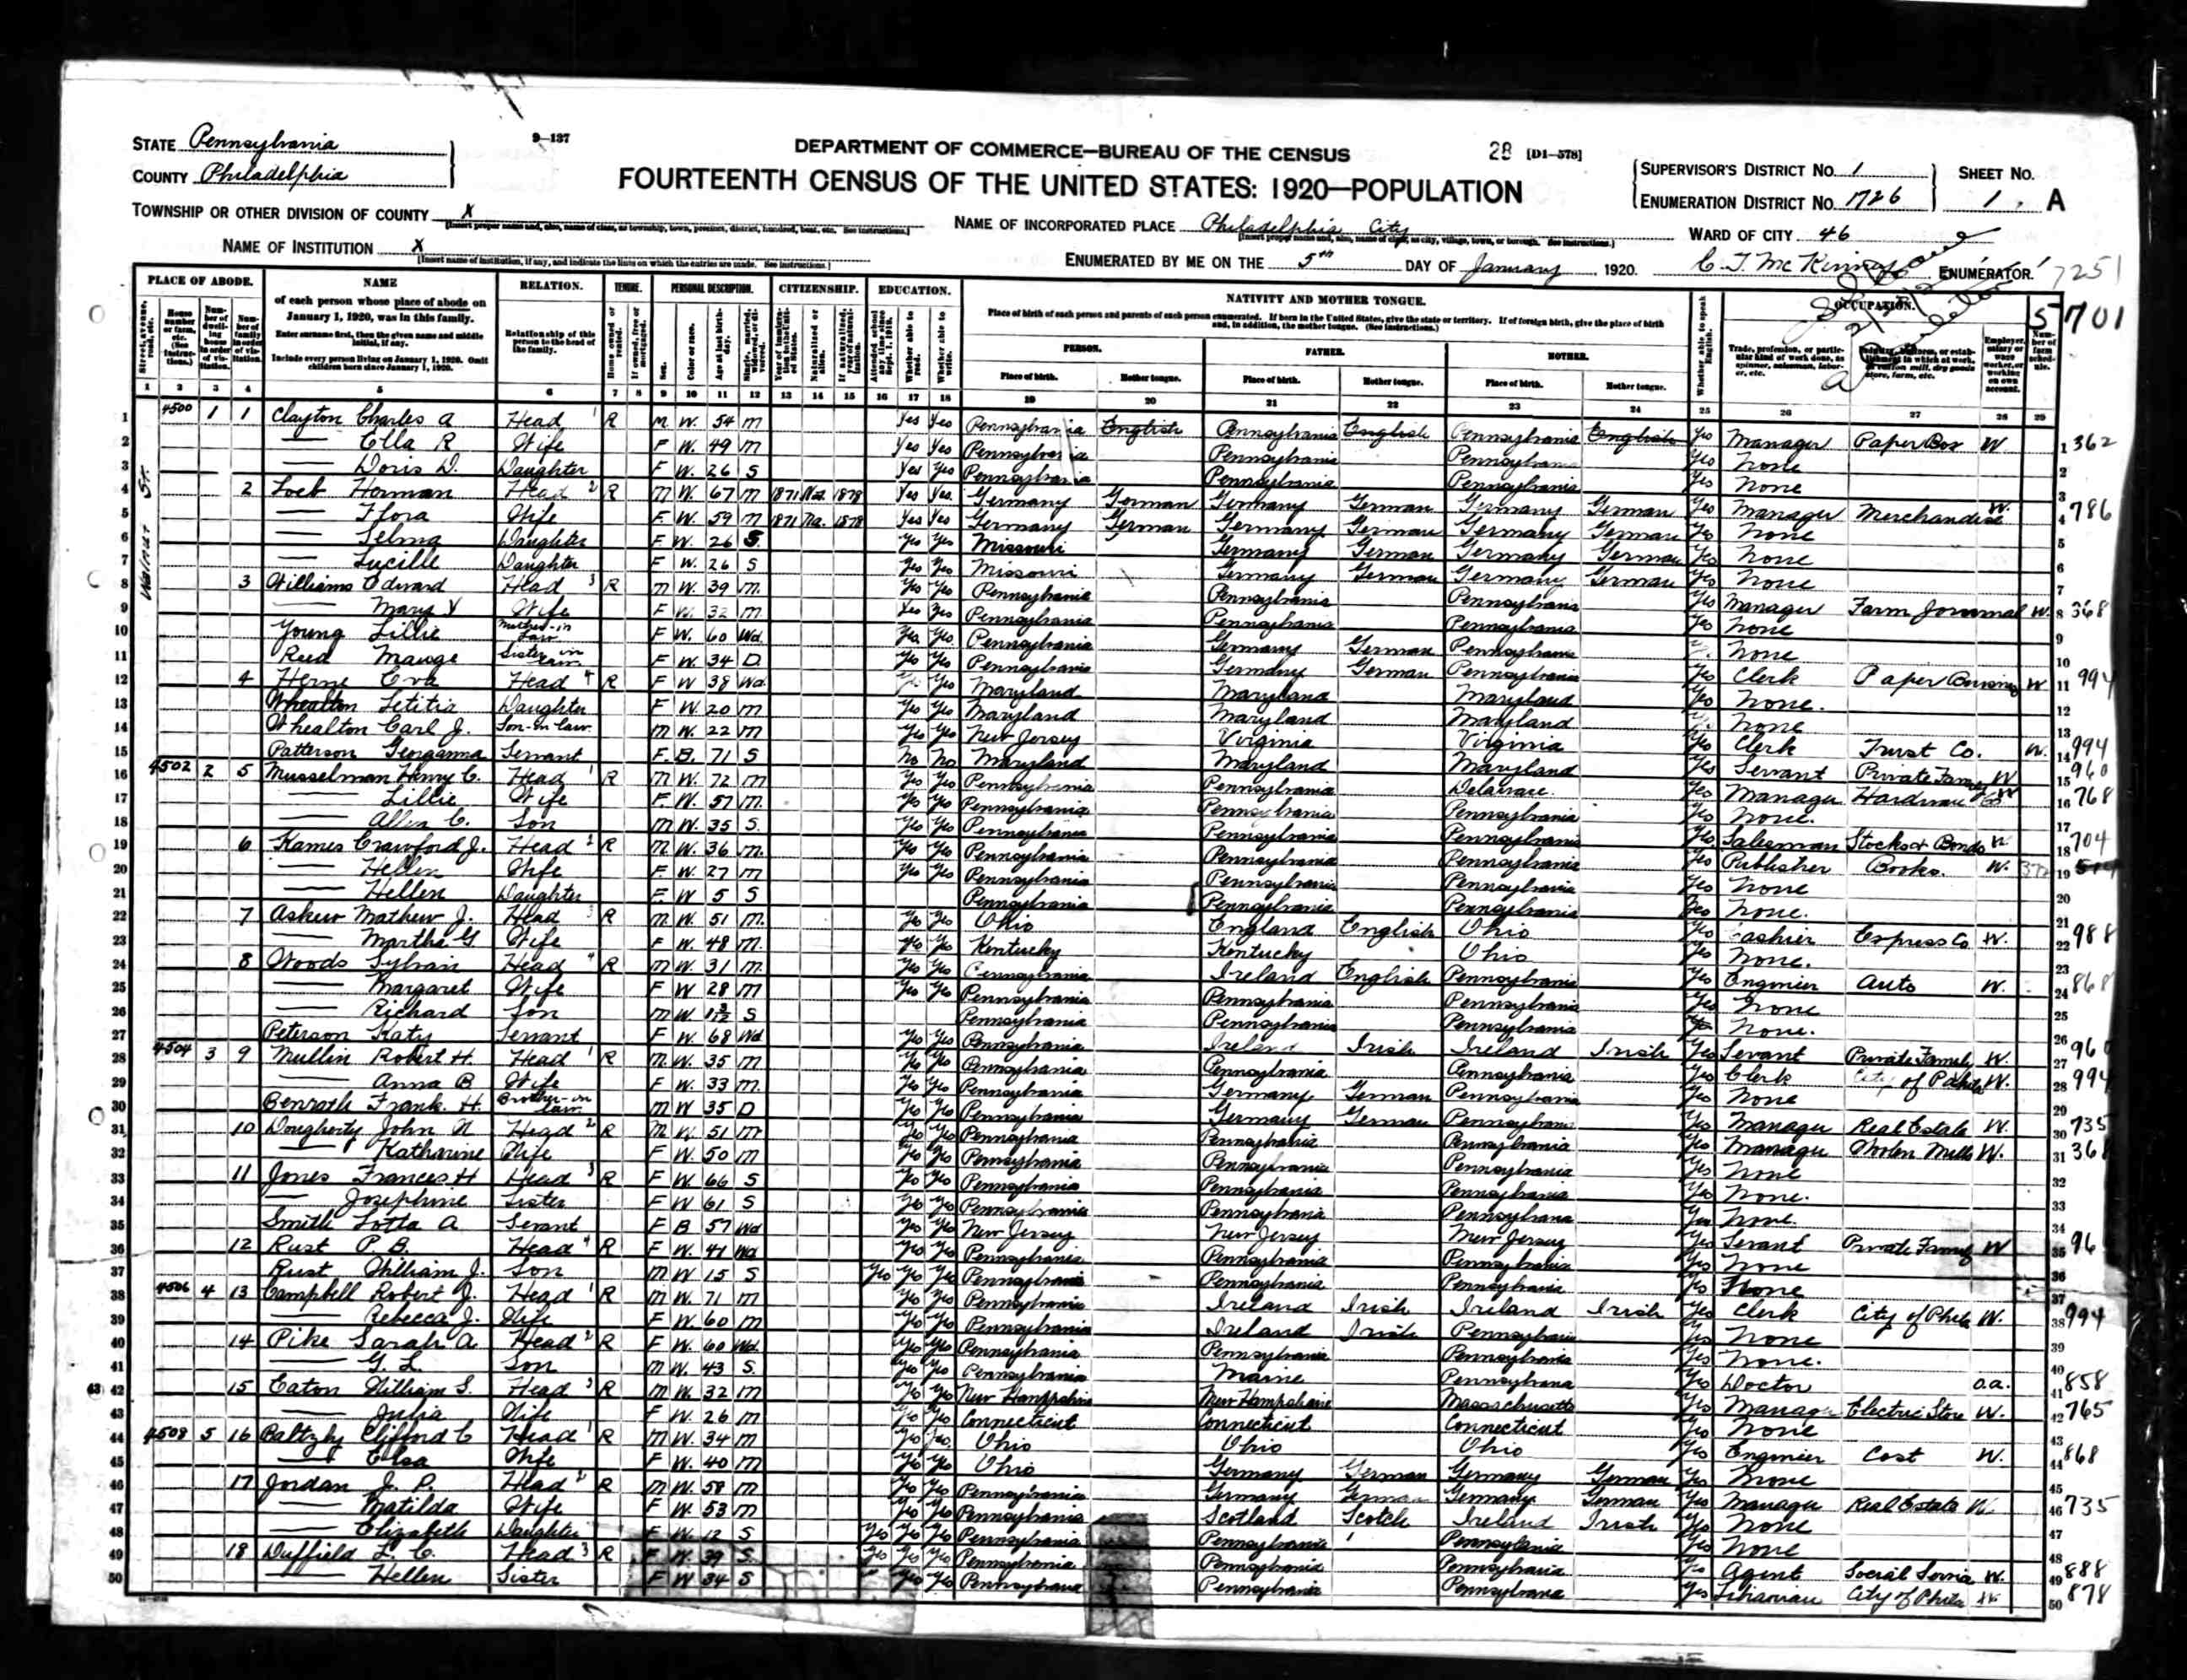 STATE Pennsylvania
COUNTY Philadelphia
9-137
DEPARTMENT OF COMMERCE—BUREAU OF THE CENSUS
28 [D1-578]
FOURTEENTH CENSUS OF THE UNITED STATES: 1920—POPULATION
SUPERVISOR'S DISTRICT No. 1
ENUMERATION DISTRICT No. 1726
SHEET No.
1. A
TOWNSHIP OR OTHER DIVISION OF COUNTY X
NAME OF INCORPORATED PLACE Philadelphia City
WARD OF CITY 46
NAME OF INSTITUTION X
[Insert name of institution, if any, and indicate the lines on which the entries are made. See instructions.]
ENUMERATED BY ME ON THE 5th DAY OF January 1920. C. T. McKinney ENUMERATOR.
7251
5701
PLACE OF ABODE. NAME RELATION. TENURE. PERSONAL DESCRIPTION. CITIZENSHIP. EDUCATION. NATIVITY AND MOTHER TONGUE. OCCUPATION.
of each person whose place of abode on January 1, 1920, was in this family.
Enter surname first, then the given name and middle initial, if any.
Include every person living on January 1, 1920. Omit children born since January 1, 1920.
Relationship of this person to the head of the family.
PERSON. FATHER. MOTHER.
Place of birth. Mother tongue. Place of birth. Mother tongue. Place of birth. Mother tongue.
1 2 3 4 5 6 7 8 9 10 11 12 13 14 15 16 17 18 19 20 21 22 23 24 25 26 27 28 29
Walnut St.
1 4500 1 1 Clayton Charles A Head R M W. 54 M Yes Yes Pennsylvania English Pennsylvania English Pennsylvania English Yes Manager Paper Box W 362
2 — Ella R Wife F W. 49 M Yes Yes Pennsylvania Pennsylvania Pennsylvania Yes None
3 — Doris D. Daughter F W. 26 S Yes Yes Pennsylvania Pennsylvania Pennsylvania Yes None
4 2 Loeb Herman Head R M W. 67 M 1871 Na. 1878 Yes Yes Germany German Germany German Germany German Yes Manager Merchandise W. 786
5 — Flora Wife F W. 59 M 1871 Na. 1878 Yes Yes Germany German Germany German Germany German Yes None
6 — Selma Daughter F W. 26 S Yes Yes Missouri Germany German Germany German Yes None
7 — Lucille Daughter F W. 26 S Yes Yes Missouri Germany German Germany German Yes None
8 3 Williams Edward Head R M W. 39 M. Yes Yes Pennsylvania Pennsylvania Pennsylvania Yes Manager Farm Journal W. 368
9 — Mary Y Wife F W. 32 M Yes Yes Pennsylvania Pennsylvania Pennsylvania Yes None
10 Young Lillie Mother-in Law F W. 60 Wd. Yes Yes Pennsylvania Germany German Pennsylvania None
11 Reed Marge Sister in Law F W. 34 D Yes Yes Pennsylvania Germany German Pennsylvania Yes Clerk Paper Business W 994
12 4 Eva Head R F W 38 Wd. Yes Maryland Maryland Maryland Yes None.
13 Whealton Letitia Daughter F W. 20 M Yes Yes Maryland Maryland Maryland None
14 Whealton Carl J. Son-in-law M W. 22 M Yes Yes New Jersey Virginia Virginia Yes Clerk Trust Co. W. 994
15 Patterson Georganna Servant F. B. 71 S No No Maryland Maryland Maryland Yes Servant Private Family W 960
16 4502 2 5 Musselman Henry C. Head R M W. 72 M Yes Yes Pennsylvania Pennsylvania Delaware. Yes Manager Hardware W 768
17 — Lillie Wife F W. 57 M. Yes Yes Pennsylvania Pennsylvania Pennsylvania Yes None.
18 — Allen C. Son M W. 35 S. Yes Yes Pennsylvania Pennsylvania Pennsylvania Yes Salesman Stocks & Bonds W 704
19 6 Crawford J. Head R M W. 36 M. Yes Yes Pennsylvania Pennsylvania Pennsylvania Yes Publisher Books. W.
20 — Hellen Wife F W. 27 M Yes Yes Pennsylvania Pennsylvania Pennsylvania Yes None
21 — Hellen Daughter F W 5 S Pennsylvania Pennsylvania Pennsylvania None.
22 7 Askew Mathew J. Head R M W. 51 M. Yes Yes Ohio England English Ohio Yes Cashier Express Co W. 988
23 — Martha G Wife F W. 48 M. Yes Yes Kentucky Kentucky Ohio Yes None.
24 8 Woods Sylvain Head R M W. 31 M. Yes Yes Pennsylvania Ireland English Pennsylvania Yes Engineer Auto W. 868
25 — Margaret Wife F W 28 M Yes Yes Pennsylvania Pennsylvania Pennsylvania Yes None
26 — Richard Son M W. S Pennsylvania Pennsylvania Pennsylvania None.
27 Peterson Katy Servant F W. 68 Wd Yes Yes Pennsylvania Ireland Irish Ireland Irish Yes Servant Private Family W. 960
28 4504 3 9 Mullin Robert H. Head R M W. 35 M Yes Yes Pennsylvania Pennsylvania Pennsylvania Yes Clerk City of Phila W. 994
29 — Anna B Wife F W. 33 M. Yes Yes Pennsylvania Germany German Pennsylvania Yes None
30 Benroth Frank. H. Brother-in law M W 35 D Yes Yes Pennsylvania Germany German Pennsylvania Yes Manager Real Estate W. 735
31 10 Dougherty John N Head R M W. 51 M Yes Yes Pennsylvania Pennsylvania Pennsylvania Yes Manager Wolen Mills W. 36
32 — Katharine Wife F W. 50 M Yes Yes Pennsylvania Pennsylvania Pennsylvania Yes None
33 11 Jones Frances H Head R F W 66 S Yes Yes Pennsylvania Pennsylvania Pennsylvania Yes None.
34 — Josephine Sister F W 61 S Yes Yes Pennsylvania Pennsylvania Pennsylvania Yes None.
35 Smith Lotta A Servant F B 57 Wd Yes Yes New Jersey New Jersey New Jersey Yes Servant Private Family W 96
36 12 Rust P. B. Head R F W. 41 Wd Yes Yes Pennsylvania Pennsylvania Pennsylvania Yes None
37 Rust William J. Son M W 15 S Yes Yes Yes Pennsylvania Pennsylvania Pennsylvania Yes None
38 4506 4 13 Campbell Robert J. Head R M W. 71 M Yes Yes Pennsylvania Ireland Irish Ireland Irish Yes Clerk City of Phila W. 994
39 — Rebecca J. Wife F W. 60 M Yes Yes Pennsylvania Ireland Irish Pennsylvania Yes None
40 14 Pike Sarah A Head R F W. 60 Wd. Yes Yes Pennsylvania Pennsylvania Pennsylvania Yes None.
41 — G. L. Son M W. 43 S. Yes Yes Pennsylvania Maine Pennsylvania Yes Doctor O.A. 858
42 15 Eaton William S. Head R M W. 32 M Yes Yes New Hampshire New Hampshire Massachusetts Yes Manager Electric Store W. 765
43 — Julia Wife F W. 26 M Yes Yes Connecticut Connecticut Connecticut Yes None
44 4508 5 16 Baltzly Clifford C Head R M W. 34 M Yes Yes. Ohio Ohio Ohio Yes Engineer Cost W. 868
45 — Elsa Wife F W. 40 M Yes Yes Ohio Germany German Germany German Yes None
46 17 Jordan J. P. Head R M W. 58 M Yes Yes Pennsylvania Germany German Germany German Yes Manager Real Estate W. 735
47 — Matilda Wife F W. 53 M Yes Yes Pennsylvania Scotland Scotch Ireland Irish Yes None
48 — Elizabeth Daughter F W. 12 S Yes Yes Yes Pennsylvania Pennsylvania Pennsylvania Yes None
49 18 Duffield L. C. Head R F W. 39 S. Yes Yes Yes Pennsylvania Pennsylvania Pennsylvania Yes Agent Social Service W. 888
50 — Hellen Sister F W 34 S Yes Yes Pennsylvania Pennsylvania Pennsylvania Yes Librarian City of Phila W 878